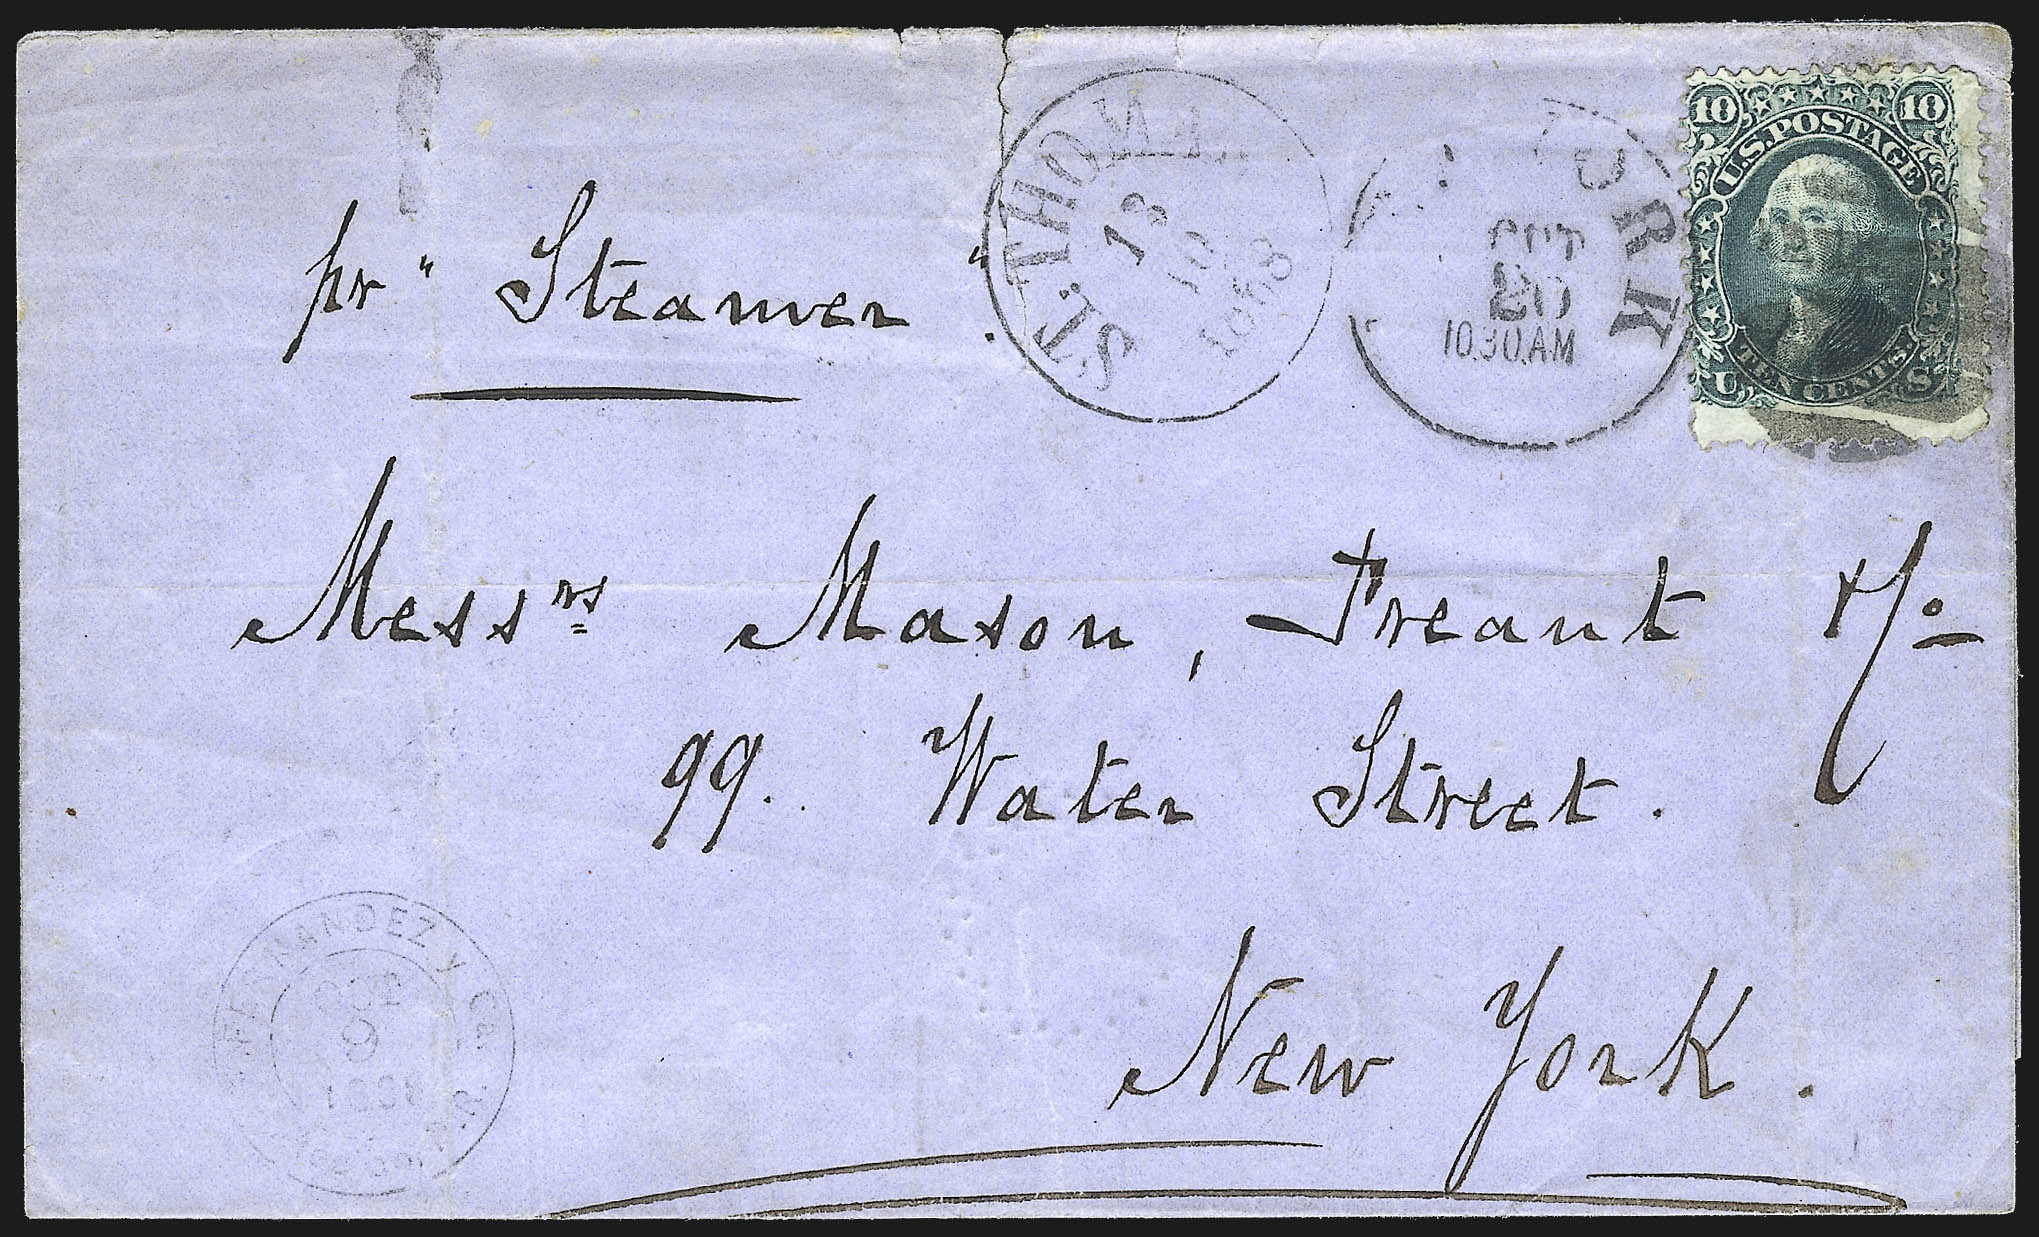 pr " Steamer ".
ST. THOMA
18
10
1868
ORK
OCT
20
10.30.AM
10 10
U.S. POSTAGE
TEN CENTS.
U S
Messrs Mason, Treant & Co
99. Water Street.
New York.
FERNANDEZ Y Ca.
OCT
9